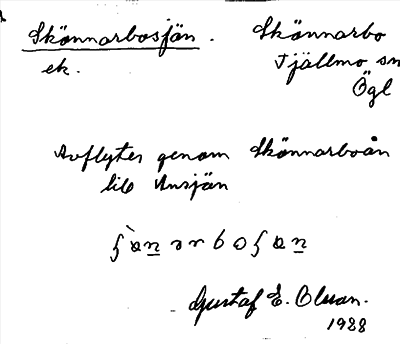 Skönnarbosjön. Skönnarbo
ek. Tjällmo sn
Ögl
Avflyter genom Skönnarboån
till Ansjön
Gustaf E. Olsson.
1938